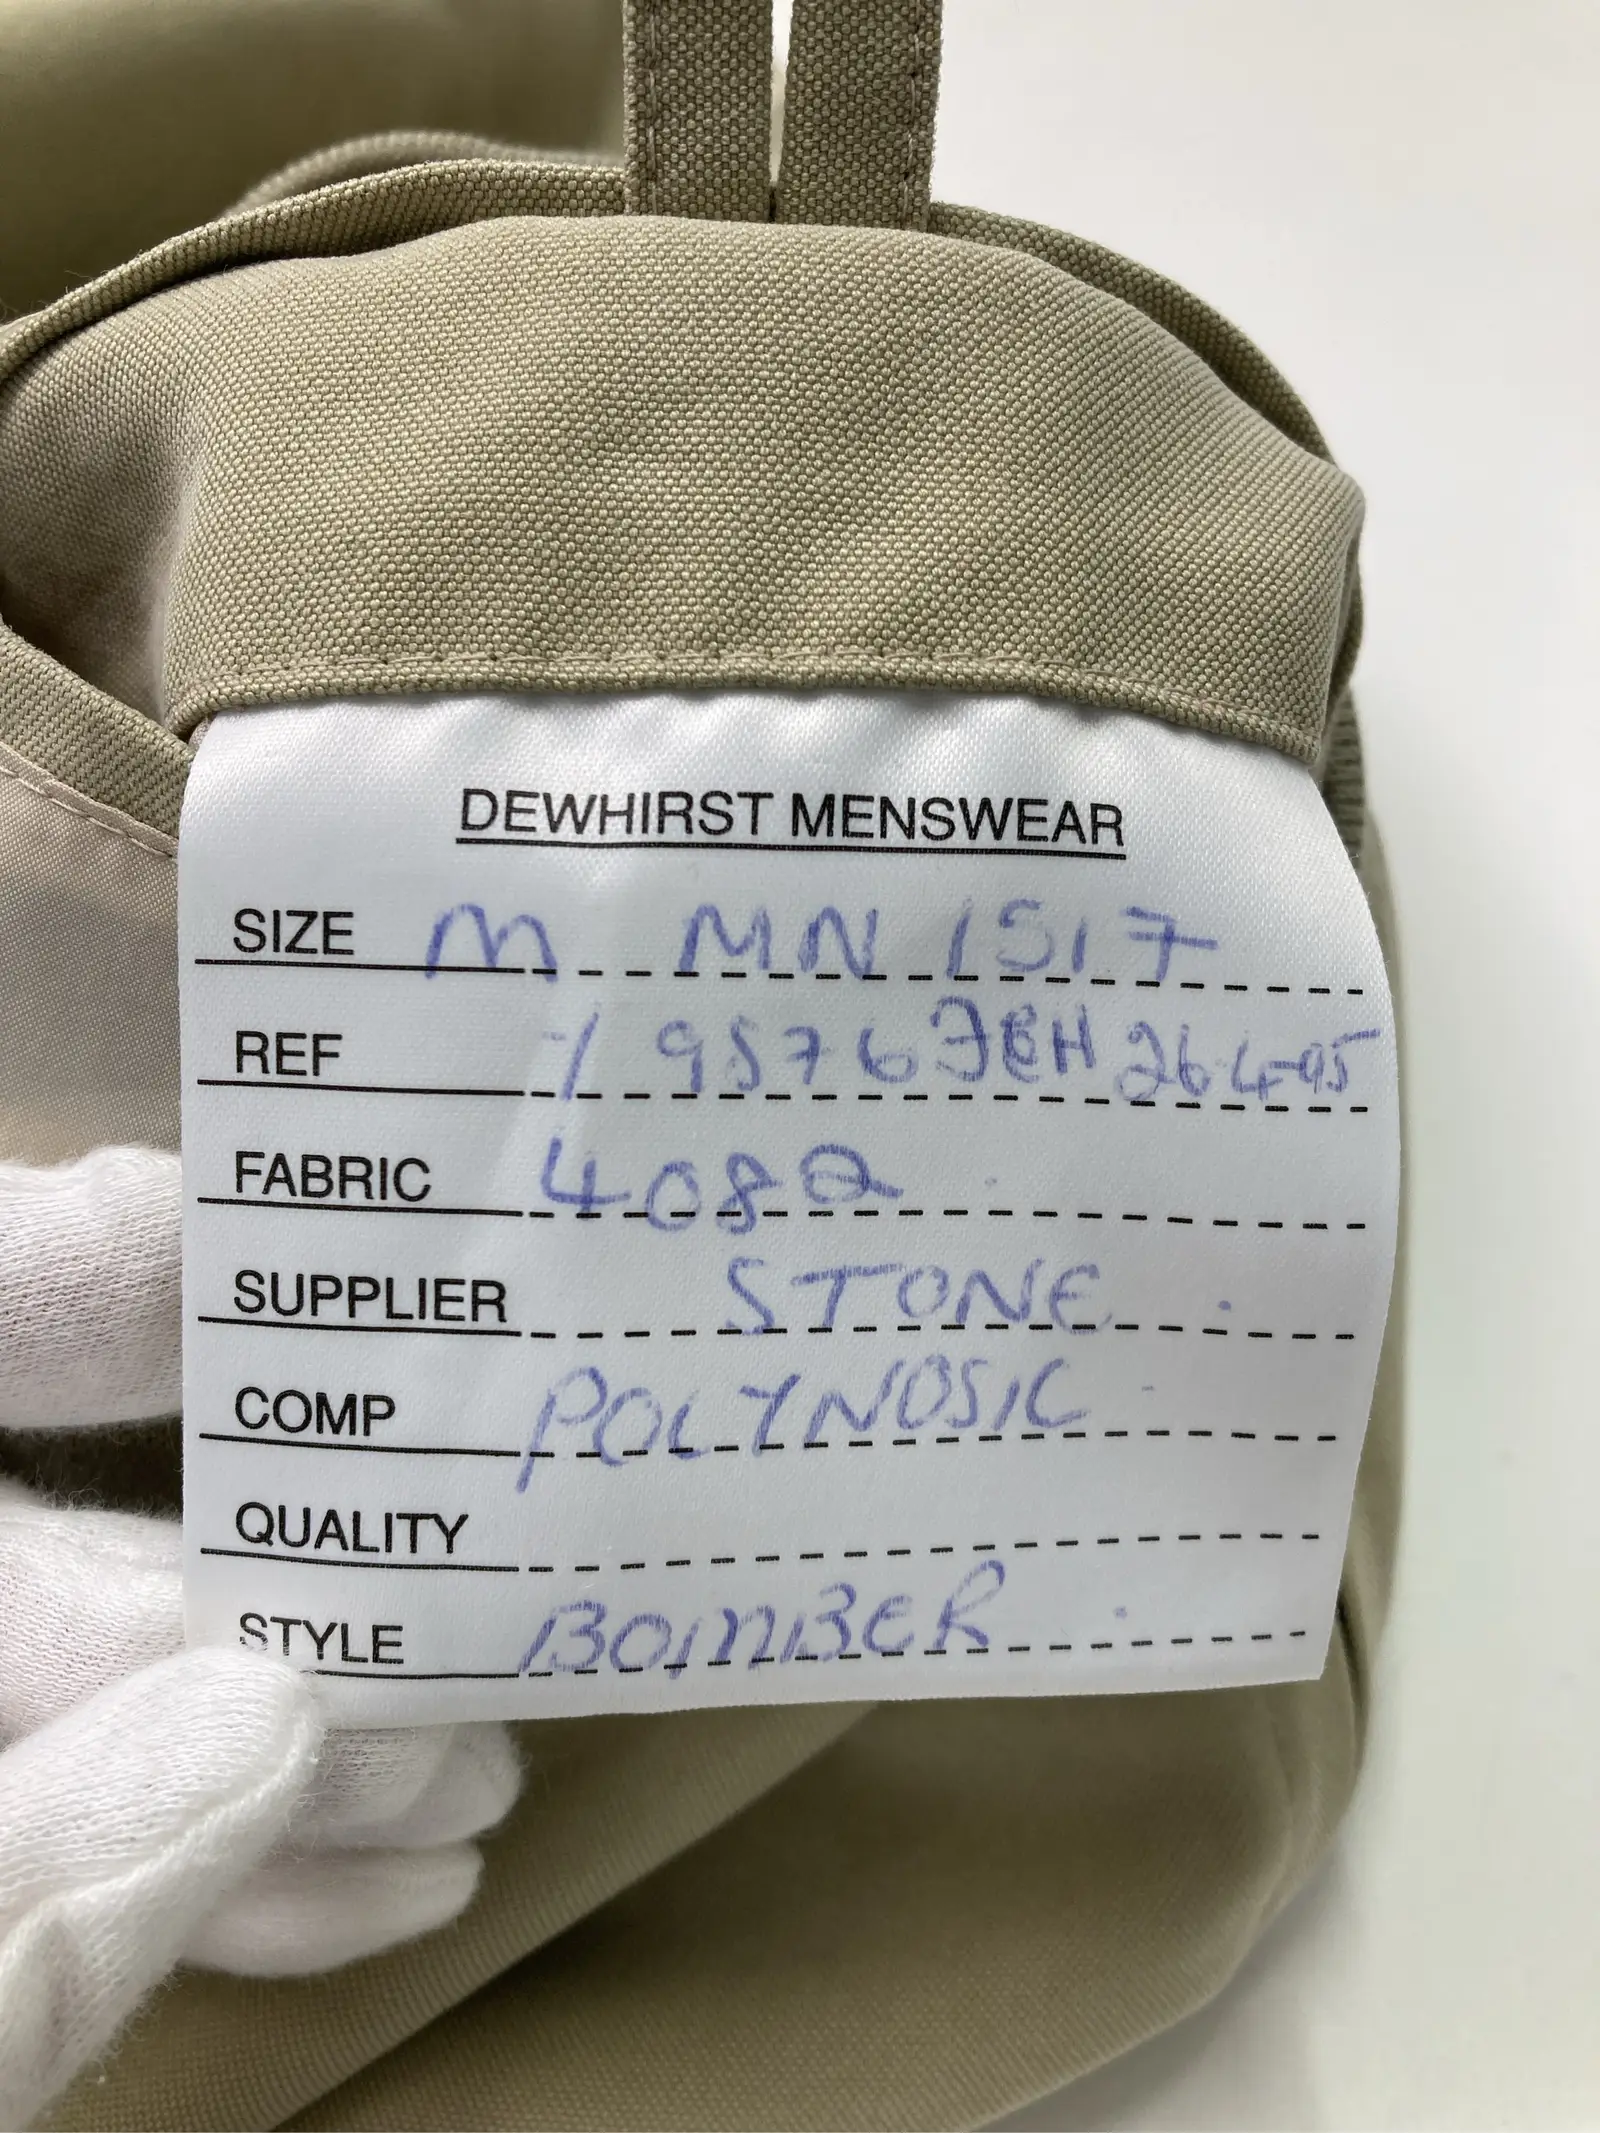 DEWHIRST MENSWEAR
SIZE M MN 1517
REF 19576 264-95
FABRIC 4082
SUPPLIER STONE
COMP POLYNOSIC
QUALITY
STYLE BOMBER